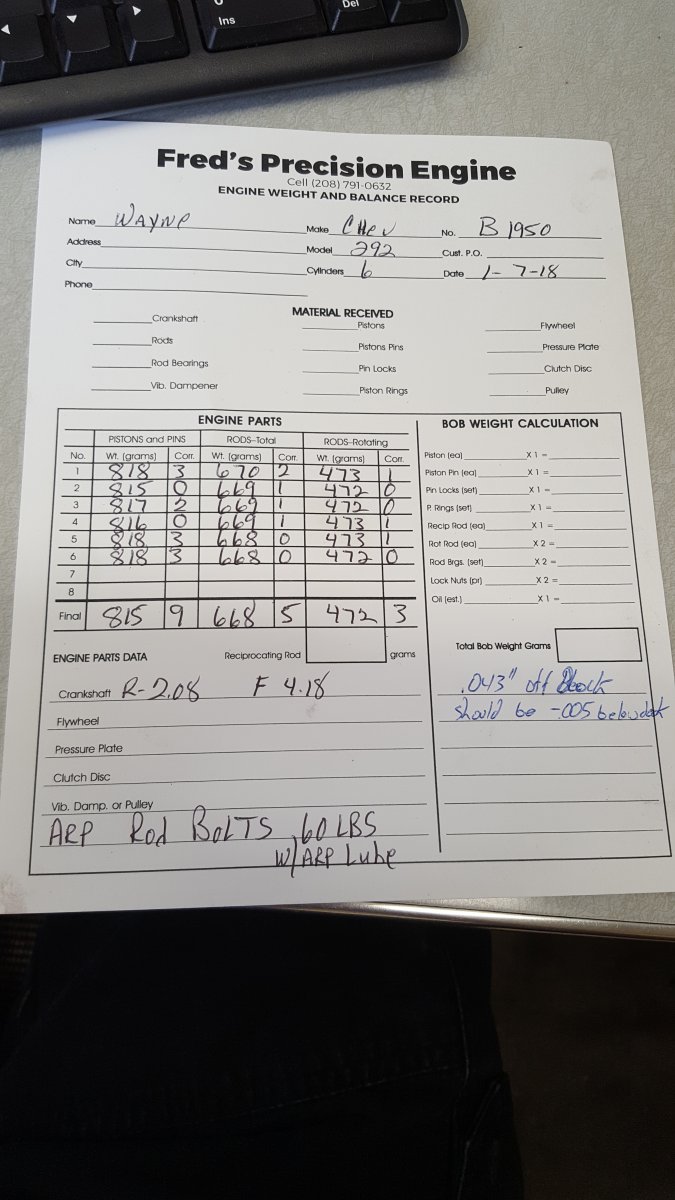 Ins
Del
Fred's Precision Engine
Cell (208) 791-0632
ENGINE WEIGHT AND BALANCE RECORD
Name WAYNE Make CHEV No. B 1950
Address Model 292 Cust. P.O.
City Cylinders 6 Date 1-7-18
Phone
MATERIAL RECEIVED
Crankshaft Pistons Flywheel
Rods Pistons Pins Pressure Plate
Rod Bearings Pin Locks Clutch Disc
Vib. Dampener Piston Rings Pulley
ENGINE PARTS
PISTONS and PINS RODS-Total RODS-Rotating
No. Wt. (grams) Corr. Wt. (grams) Corr. Wt. (grams) Corr.
1 818 3 670 2 473 1
2 815 0 669 1 472 0
3 817 2 669 1 472 0
4 816 0 669 1 473 1
5 818 3 668 0 473 1
6 818 3 668 0 472 0
7
8
Final 815 9 668 5 472 3
ENGINE PARTS DATA Reciprocating Rod grams
Crankshaft R-2.08 F 4.18
Flywheel
Pressure Plate
Clutch Disc
Vib. Damp. or Pulley
ARP Rod BOLTS 60 LBS
W/ARP Lube
BOB WEIGHT CALCULATION
Piston (ea) X 1 =
Piston Pin (ea) X 1 =
Pin Locks (set) X 1 =
P. Rings (set) X 1 =
Recip Rod (ea) X 1 =
Rot Rod (ea) X 2 =
Rod Brgs. (set) X 2 =
Lock Nuts (pr) X 2 =
Oil (est.) X 1 =
Total Bob Weight Grams
.043" off Block
should be -.005 below deck